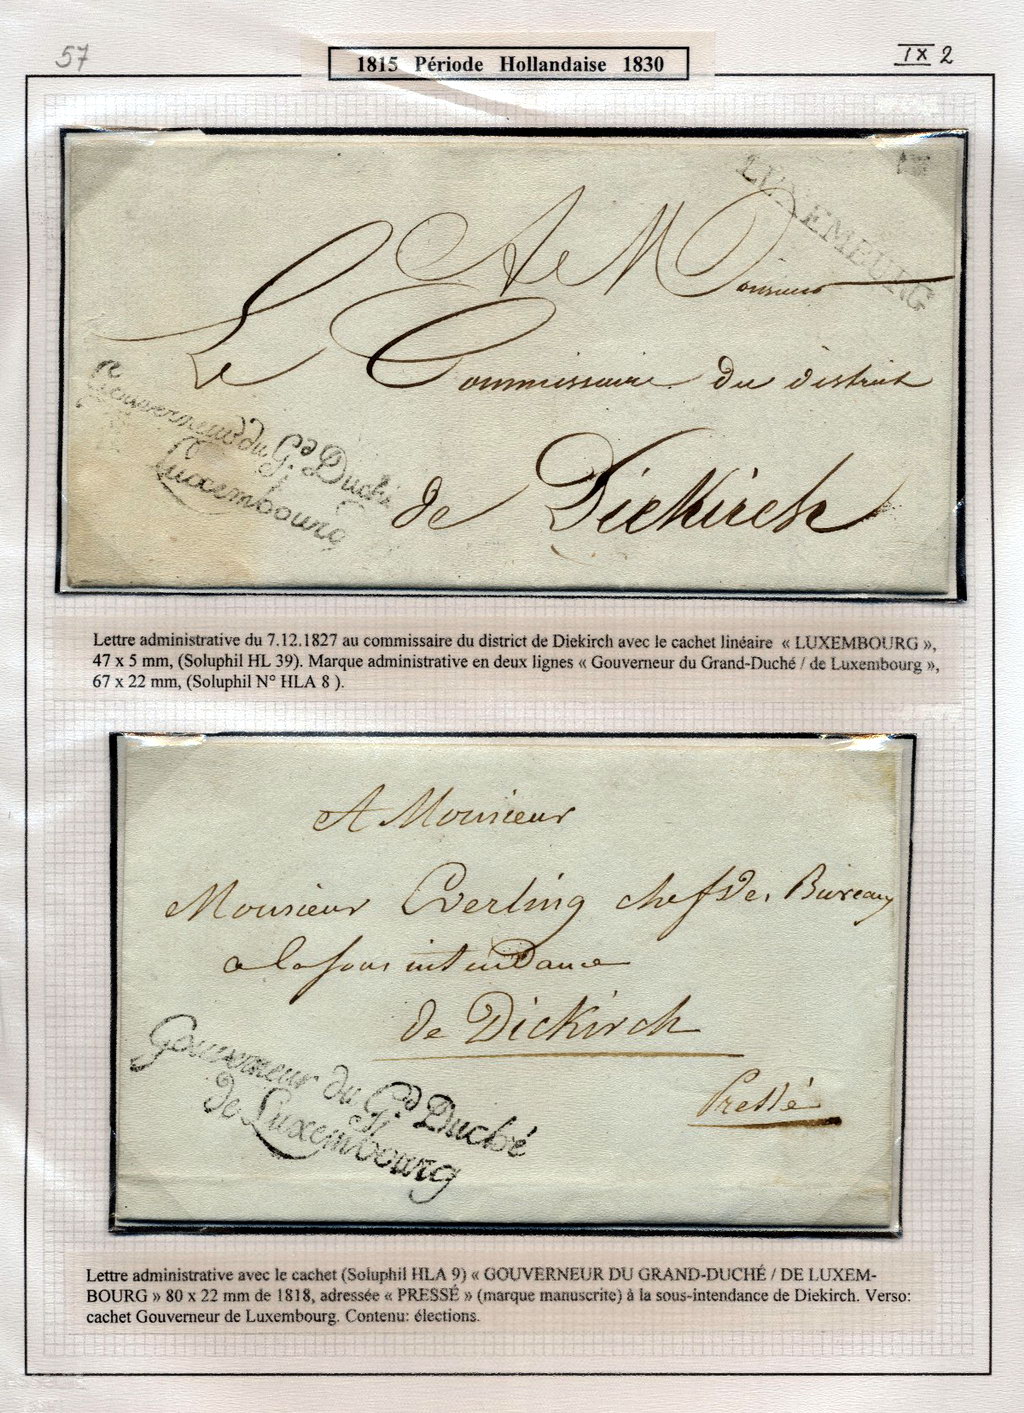 57
1815 Période Hollandaise 1830
IX 2
LUXEMBOURG
A Monsieur
Le Commissaire du district
de Diekirch
Gouverneur du Gd. Duché
Luxembourg
Lettre administrative du 7.12.1827 au commissaire du district de Diekirch avec le cachet linéaire « LUXEMBOURG »,
47 x 5 mm, (Soluphil HL 39). Marque administrative en deux lignes « Gouverneur du Grand-Duché / de Luxembourg »,
67 x 22 mm, (Soluphil N° HLA 8 ).
A Monsieur
Monsieur Everling chef des Bureaux
a la sous intendance
de Diekirch
Pressé
Gouverneur du Gd. Duché
de Luxembourg
Lettre administrative avec le cachet (Soluphil HLA 9) « GOUVERNEUR DU GRAND-DUCHÉ / DE LUXEM-
BOURG » 80 x 22 mm de 1818, adressée « PRESSÉ » (marque manuscrite) à la sous-intendance de Diekirch. Verso:
cachet Gouverneur de Luxembourg. Contenu: élections.